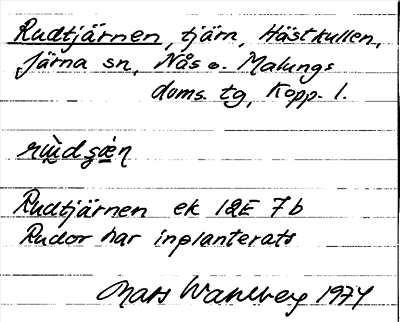 Rudtjärnen, tjärn, Hästkullen,
Järna sn, Nås o. Malungs
doms. tg, Kopp. l.
Rudtjärnen ek 12E 7b
Rudor har inplanterats
Mats Wahlberg 1974